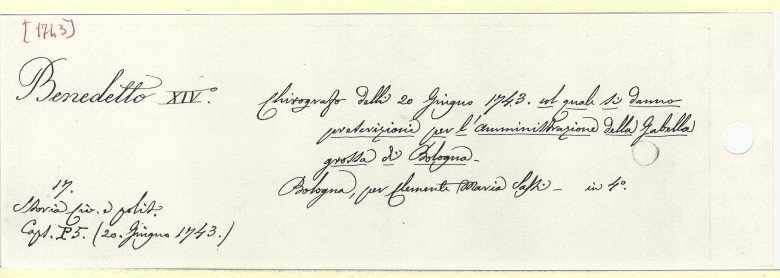 [1743]
Benedetto XIV.°
Chirografo delli 20 Giugno 1743. col quale si danno
provvizione per l'Amministrazione della Gabella
grossa di Bologna.
Bologna, per Clemente Maria Sassi - in 4°.
17.
Storia Civ. e polit.
Cart. P5. (20. Giugno 1743.)